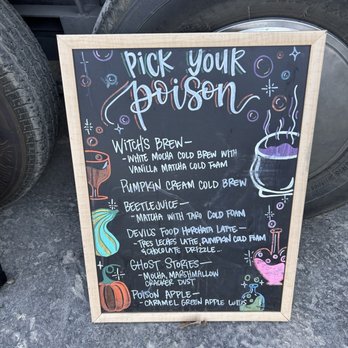 PICK YOUR
poison
WITCH'S BREW—
- WHITE MOCHA COLD BREW WITH
VANILLA MATCHA COLD FOAM
PUMPKIN CREAM COLD BREW
BEETLEJUICE—
- MATCHA WITH TARO COLD FOAM
DEVIL'S FOOD HORCHATA LATTE—
- TRES LECHES LATTE, PUMPKIN COLD FOAM
& CHOCOLATE DRIZZLE...
GHOST STORIES—
- MOCHA, MARSHMALLOW
CRACKER DUST
POISON APPLE—
- CARAMEL GREEN APPLE